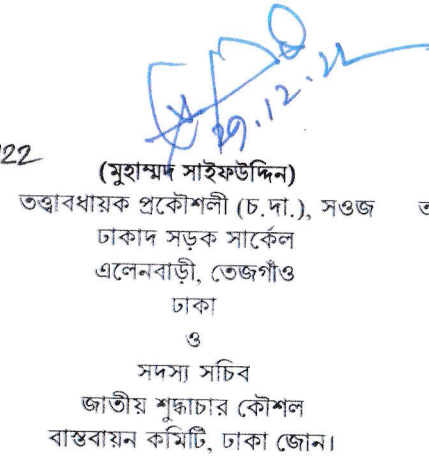 29.12.22
22
(মুহাম্মদ সাইফউদ্দিন)
তত্ত্বাবধায়ক প্রকৌশলী (চ.দা.), সওজ
ঢাকাদ সড়ক সার্কেল
এলেনবাড়ী, তেজগাঁও
ঢাকা
ও
সদস্য সচিব
জাতীয় শুদ্ধাচার কৌশল
বাস্তবায়ন কমিটি, ঢাকা জোন।